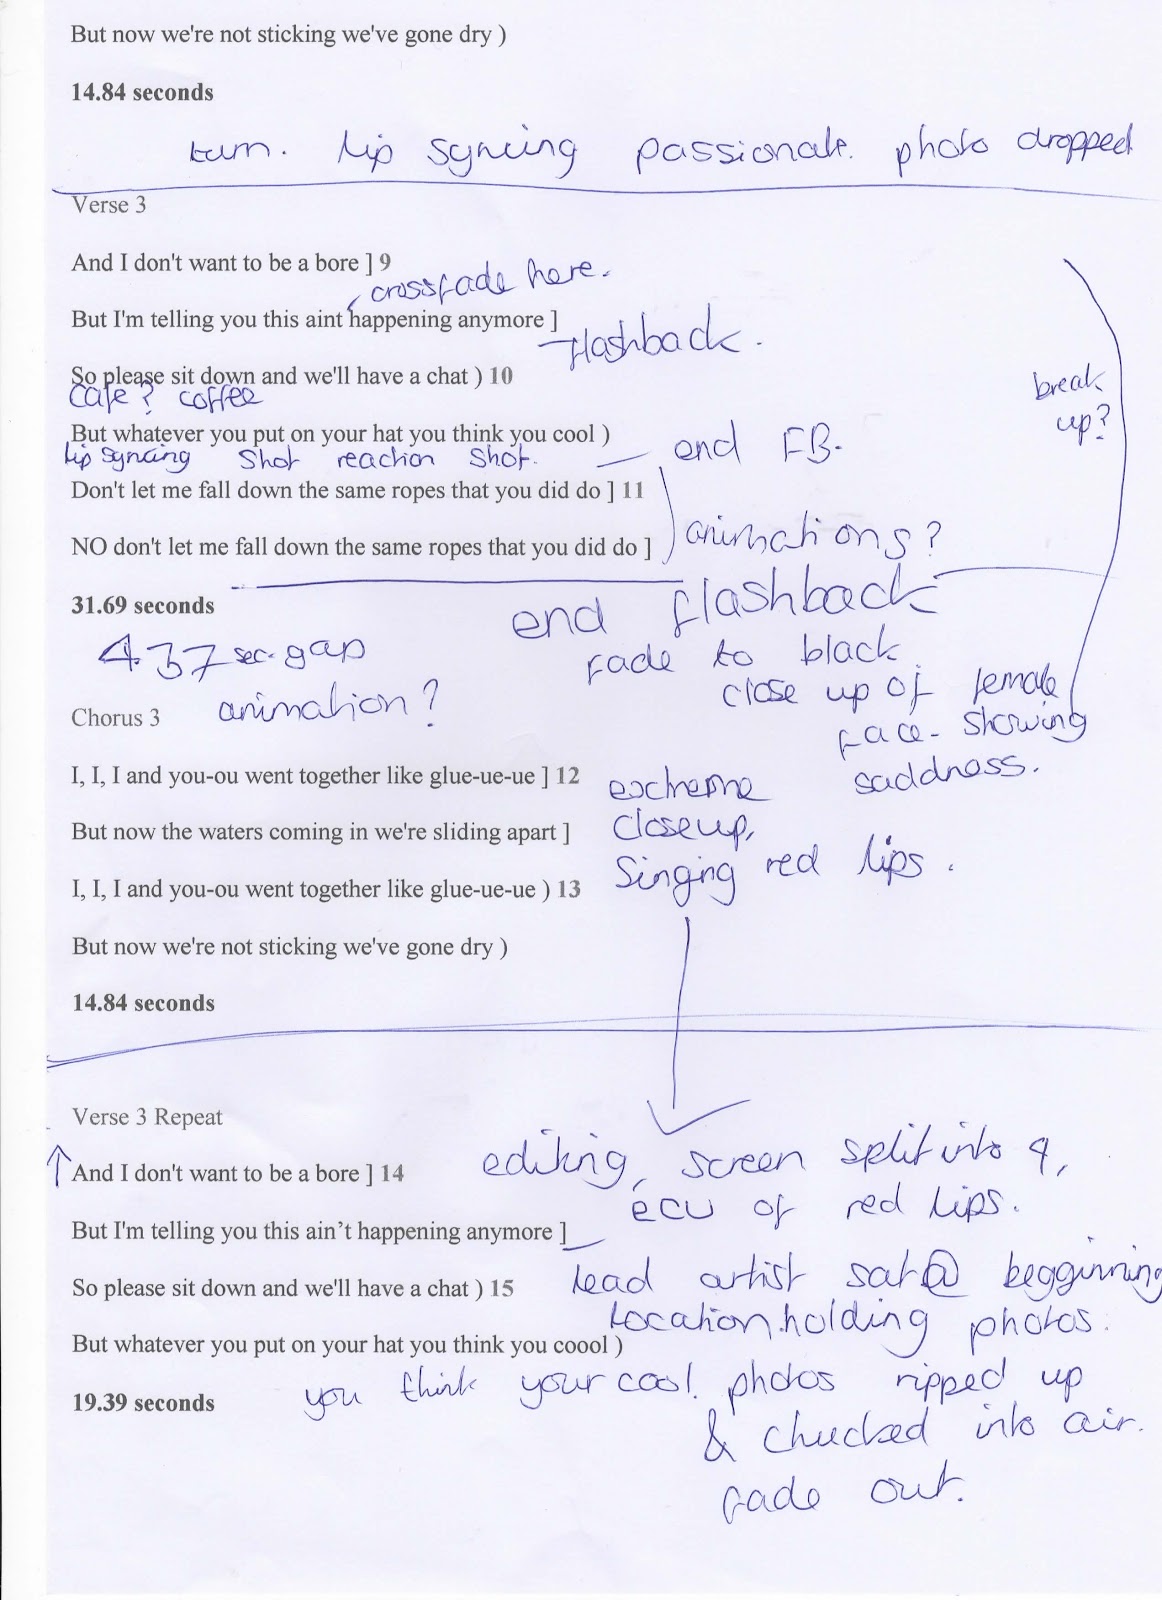 But now we're not sticking we've gone dry )
14.84 seconds
turn. lip syncing passionate. photo dropped
Verse 3
And I don't want to be a bore ] 9
crossfade here.
But I'm telling you this aint happening anymore ]
flashback.
So please sit down and we'll have a chat ) 10
cafe? coffee
break
up?
But whatever you put on your hat you think you cool )
lip syncing shot reaction shot. — end FB.
Don't let me fall down the same ropes that you did do ] 11
animations?
NO don't let me fall down the same ropes that you did do ]
31.69 seconds
end flashback
4.37 sec gap
fade to black
animation?
close up of female
face - showing
saddness.
Chorus 3
I, I, I and you-ou went together like glue-ue-ue ] 12
extreme
But now the waters coming in we're sliding apart ]
closeup,
singing red lips.
I, I, I and you-ou went together like glue-ue-ue ) 13
But now we're not sticking we've gone dry )
14.84 seconds
Verse 3 Repeat
And I don't want to be a bore ] 14
editing, screen split into 4,
ECU of red lips.
But I'm telling you this ain’t happening anymore ]
So please sit down and we'll have a chat ) 15
lead artist sat @ begginning
location.holding photos.
But whatever you put on your hat you think you coool )
19.39 seconds
you think your cool. photos ripped up
& chucked into air.
fade out.